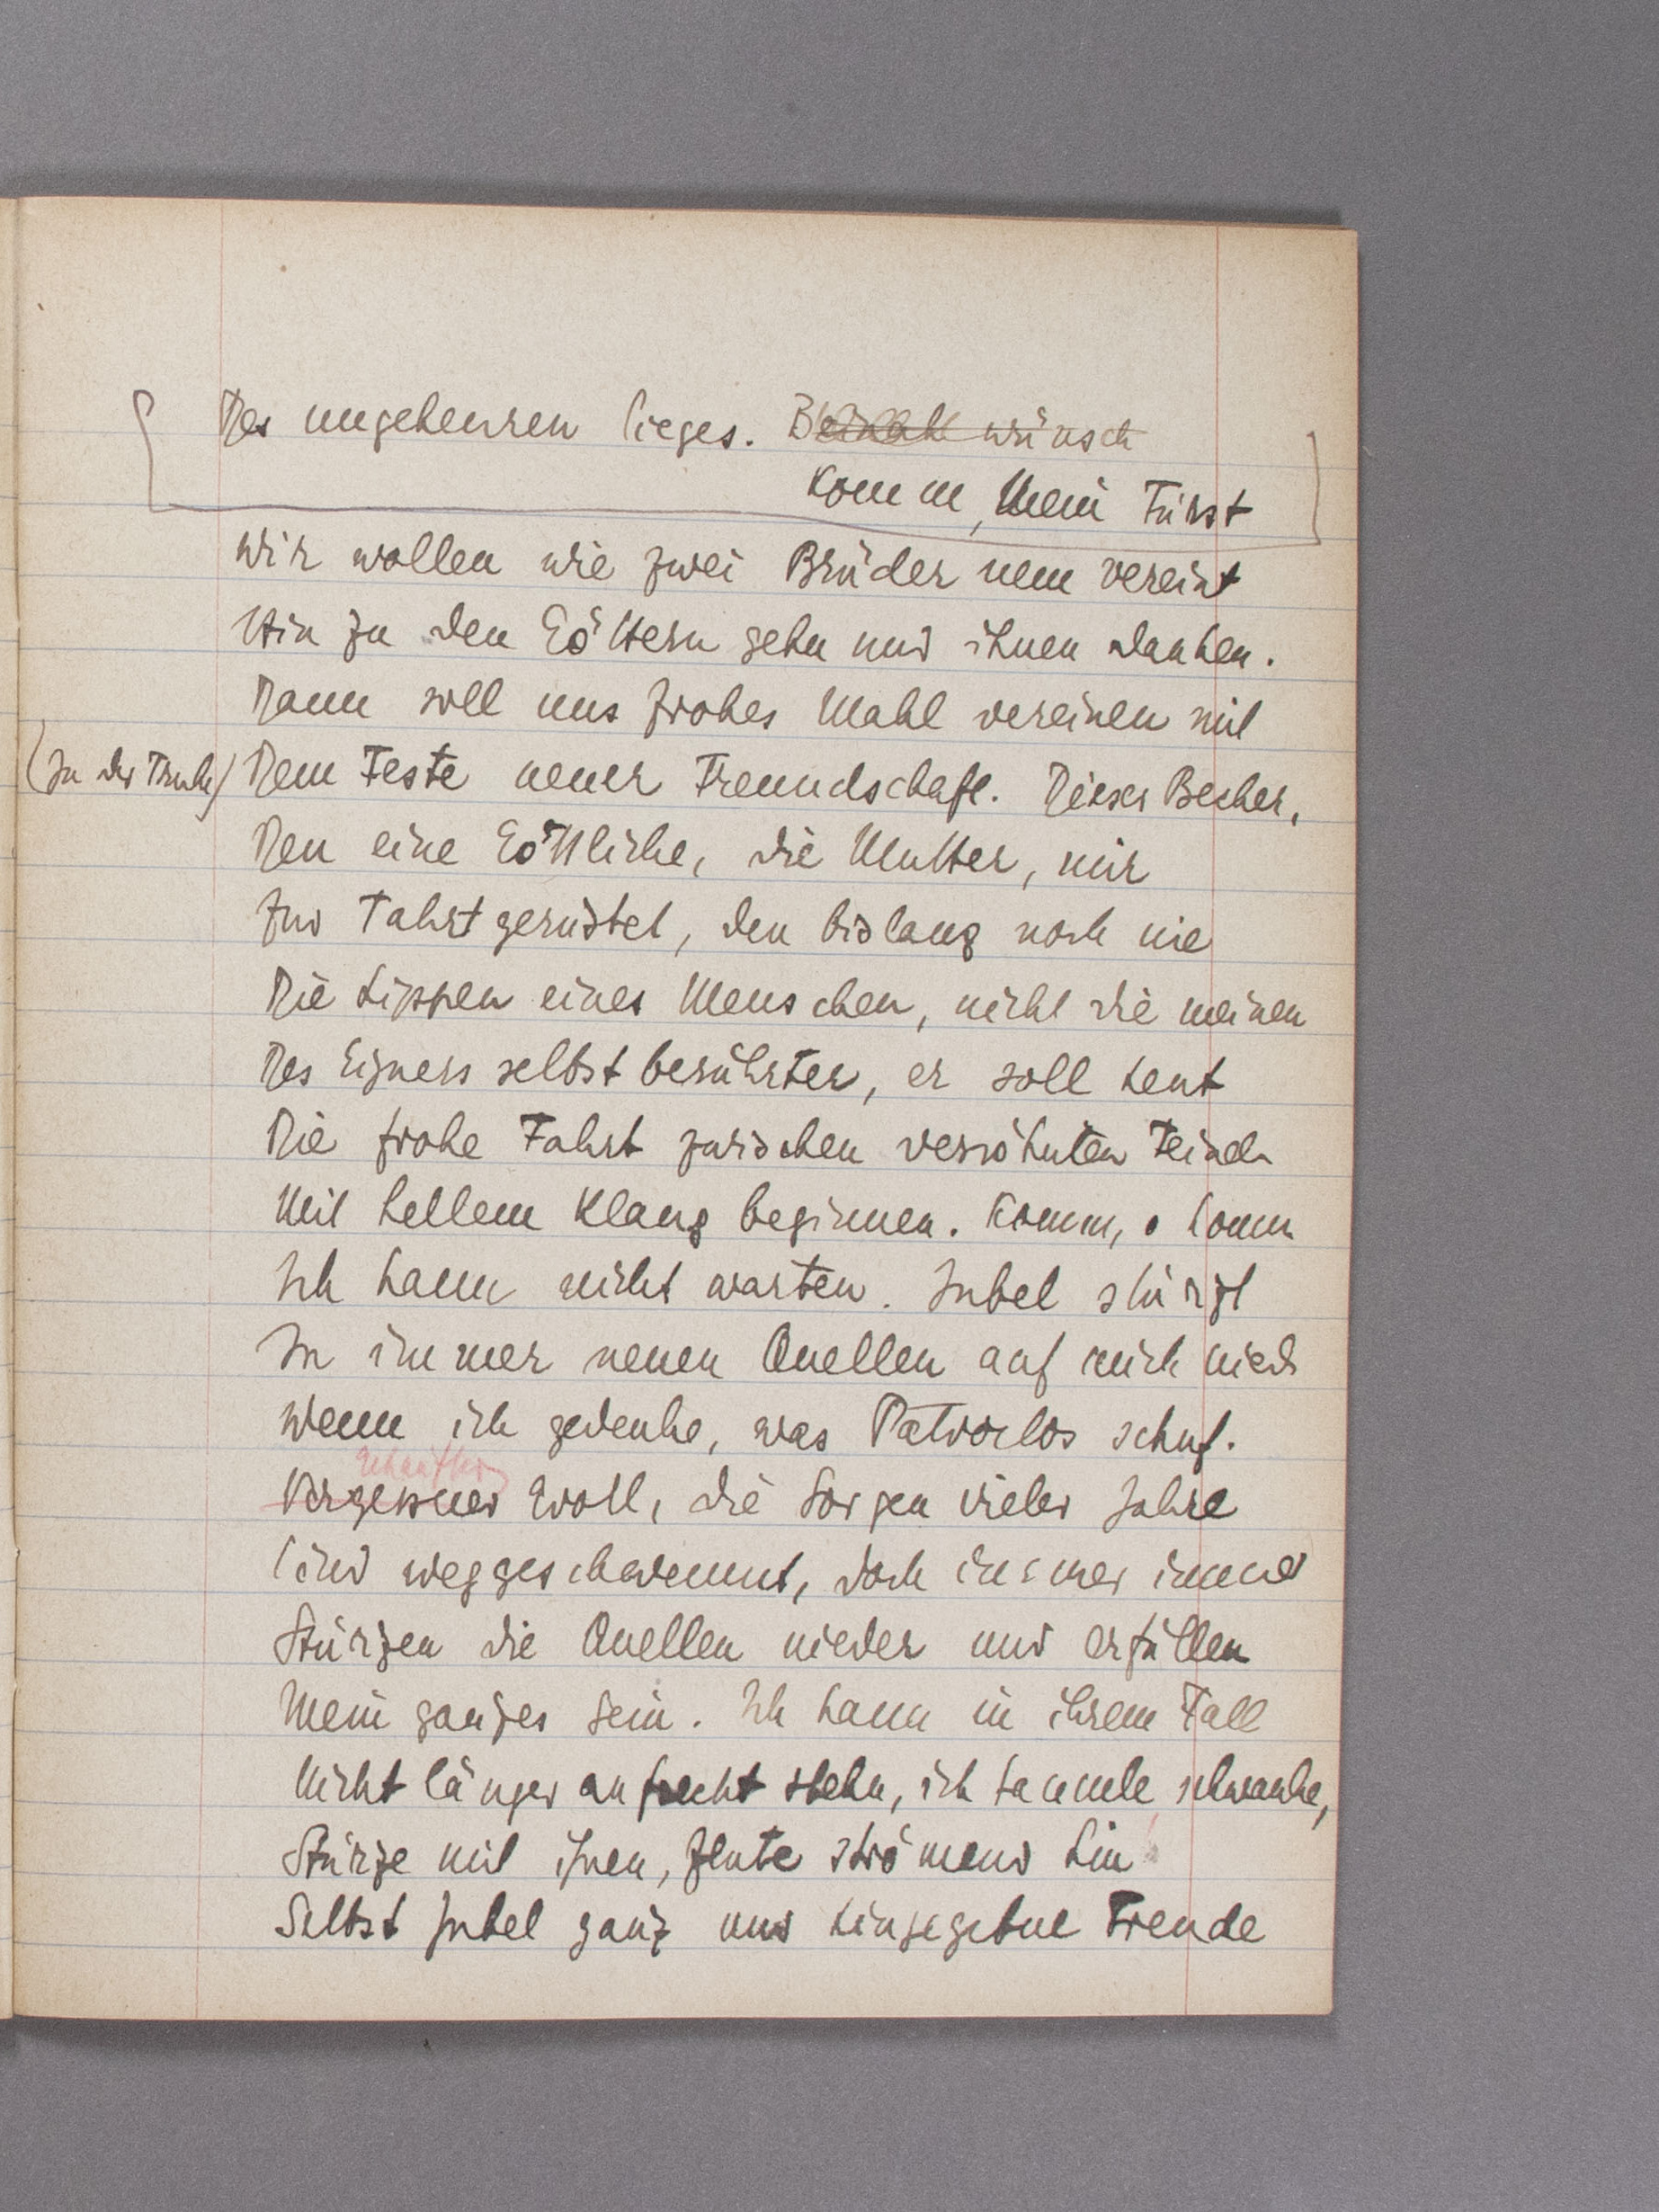 Des ungeheuren Sieges. Beinah wünsch
Komm, Mein Fürst
Wir wollen wie zwei Brüder neu vereint
Hin zu den Göttern gehn und ihnen danken.
Dann soll uns frohes Mahl vereinen mit
(zu der Truhe) Dem Feste neuer Freundschaft. Dieser Becher,
Den eine Göttliche, die Mutter, mir
Zur Fahrt gerüstet, den bislang noch nie
Die Lippen eines Menschen, nicht die meinen
Des Eigners selbst berührten, er soll heut
Die frohe Fahrt zwischen versöhnten Feinden
Mit hellem Klang beginnen. Komm, o komm
Ich kann nicht warten. Jubel stürzt
In immer neuen Quellen auf mich nieder
Wenn ich gedenke, was Patroclos schuf.
Vergessner Groll, die Sorgen vieler Jahre
Sind weggeschwemmt, doch immer immer
Stürzen die Quellen nieder und erfüllen
Mein ganzes Sein. Ich kann in ihrem Fall
Nicht länger aufrecht stehn, ich taumle schwanke,
Stürze mit ihnen, flute strömend hin
Selbst Jubel ganz und hingegebne Freude